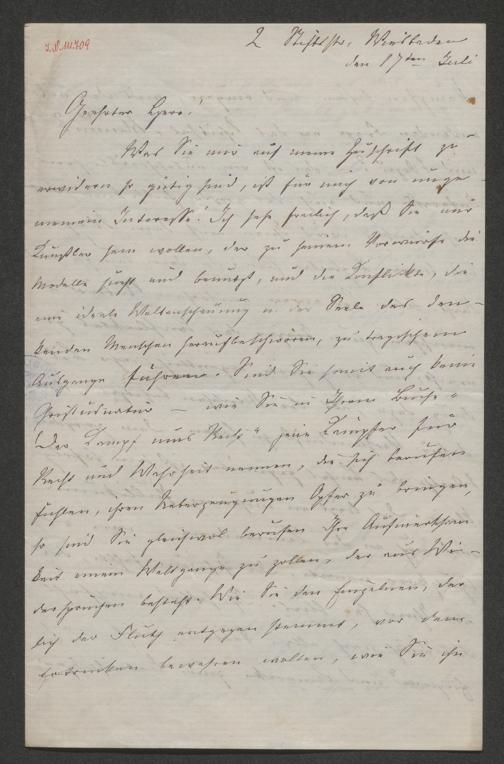 I.N. 111.709
2 Stiftstr. Wiesbaden
den 17ten Juli
Geehrter Herr!
Was Sie mir auf meine Zuschrift zu
erwidern so gütig sind, ist für mich von unge-
meinem Interesse. Ich sehe freilich, daß Sie nur
Künstler sein wollen, der zu seinem Vorwurfe die
Modelle sucht und benutzt, und die Conflickte, die
eine ideale Weltanschauung in der Seele des den-
kenden Menschen heraufbeschwören, zu tragischem
Ausgange führen. Sind Sie somit auch keine
Christusnatur – wie Sie in Ihrem Buche "
Der Kampf ums Recht" jene Kämpfer für
Recht und Wahrheit nennen, die sich berufen
fühlen, ihren Ueberzeugungen Opfer zu bringen,
so sind Sie gleichwol berufen Ihre Aufmerksam
keit einem Weltgange zu zollen, der aus Wi-
dersprüchen besteht. Wie Sie den Einzelnen, der
sich der Fluth entgegen stemmt, vor dem
ertrinken bewahren wollen, wie Sie ihn